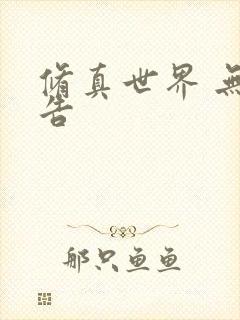 脩真世界 無
告
那只鱼鱼